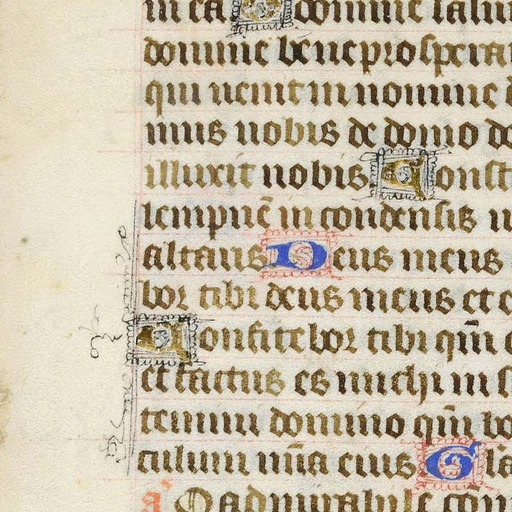 in ea O domine salu
domine bene prospera
qui uenit in nomine d
imus uobis de domo do
illuxit nobis Const
sempnē in condensis u
altaris Deus meus
bor tibi deus meus et e
Confitebor tibi qm̄ e
et factus es michi in s
temini domino qm̄ bo
culum mīa eius G
a O admirabile com